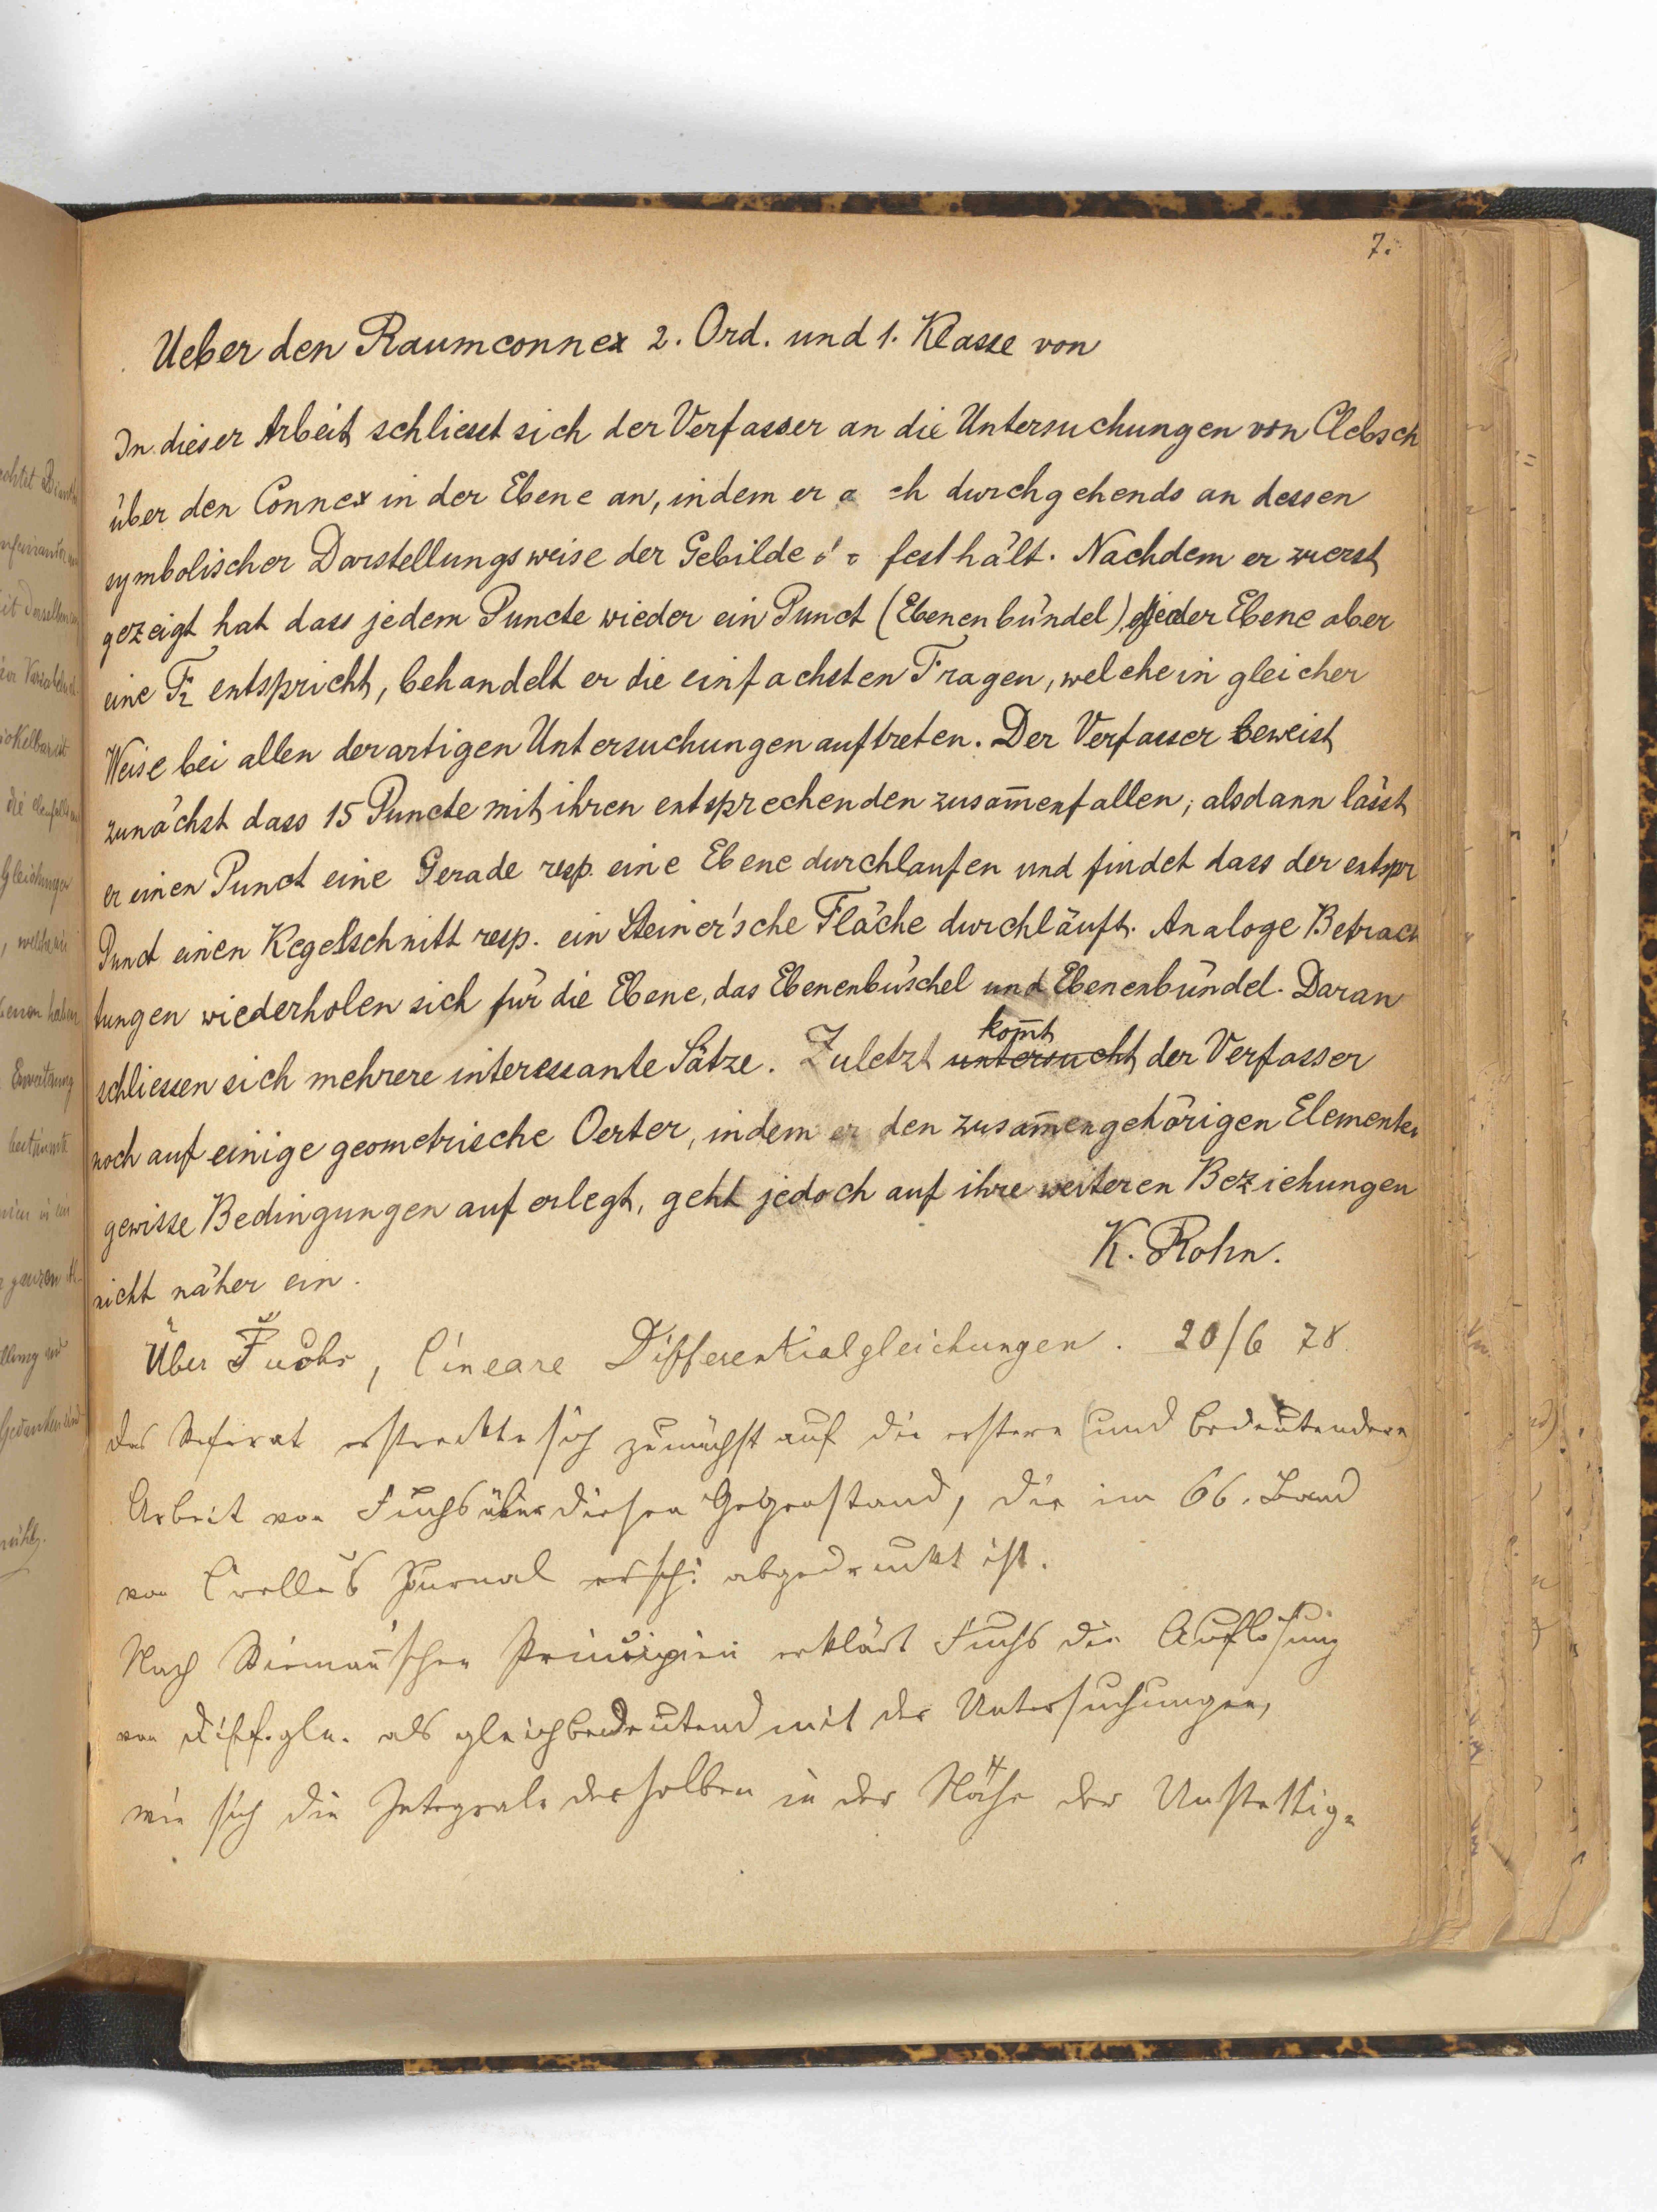 7.
Ueber den Raumconnex 2. Ord. und 1. Klasse von
In dieser Arbeit schliesst sich der Verfasser an die Untersuchungen von Clebsch
über den Connex in der Ebene an, indem er durchgehends an dessen
symbolischer Darstellungsweise der Gebilde festhält. Nachdem er zuerst
gezeigt hat dass jedem Puncte wieder ein Punct (Ebenenbündel), jeder Ebene aber
eine F₂ entspricht, behandelt er die einfachsten Fragen, welche in gleicher
Weise bei allen derartigen Untersuchungen auftreten. Der Verfasser beweist
zunächst dass 15 Puncte mit ihren entsprechenden zusam̄enfallen; alsdann lässt
er einen Punct eine Gerade resp. eine Ebene durchlaufen und findet dass der entspr
Punct einen Kegelschnitt resp. ein Steiner'sche Fläche durchläuft. Analoge Betrach
tungen wiederholen sich für die Ebene, das Ebenenbüschel und Ebenenbündel. Daran
schliessen sich mehrere interessante Sätze. Zuletzt untersucht kom̄t der Verfasser
noch auf einige geometrische Oerter, indem er den zusam̄engehörigen Elementen
gewisse Bedingungen auferlegt, geht jedoch auf ihre weiteren Beziehungen
nicht näher ein.
K. Rohn.
Über Fuchs, lineare Differentialgleichungen. 20/6 78.
Das Referat erstreckte sich zunächst auf die erstere (und bedeutendere)
Arbeit von Fuchs über diesen Gegenstand, die im 66. Band
von Crelle's Journal ersch: abgedruckt ist.
Nach Rieman̄'schen Principien erklärt Fuchs die Auflösung
von Diff.gln. als gleichbedeutend mit der Untersuchungen,
wie sich die Integrale derselben in der Nähe der Unstettig-